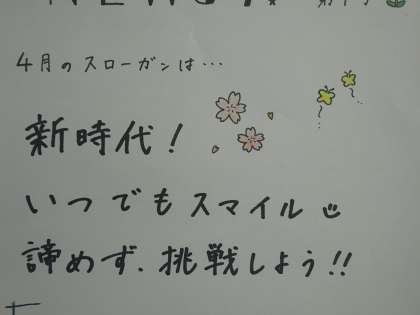 4月のスローガンは…
新時代!
いつでもスマイル
諦めず、挑戦しよう!!